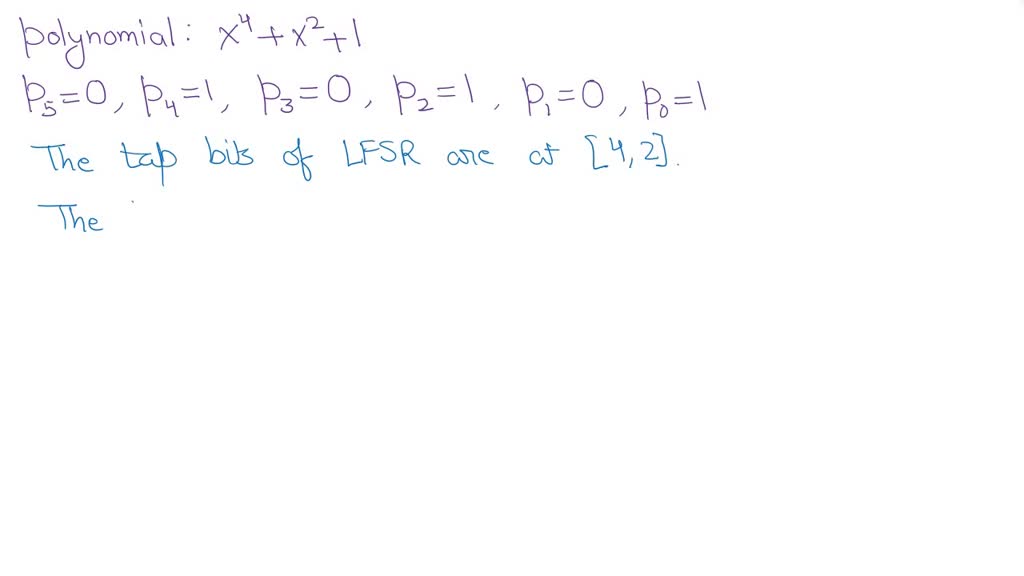 polynomial: x⁴+x²+1
p₅=0, p₄=1, p₃=0, p₂=1, p₁=0, p₀=1
The tap bits of LFSR are at [4,2].
The